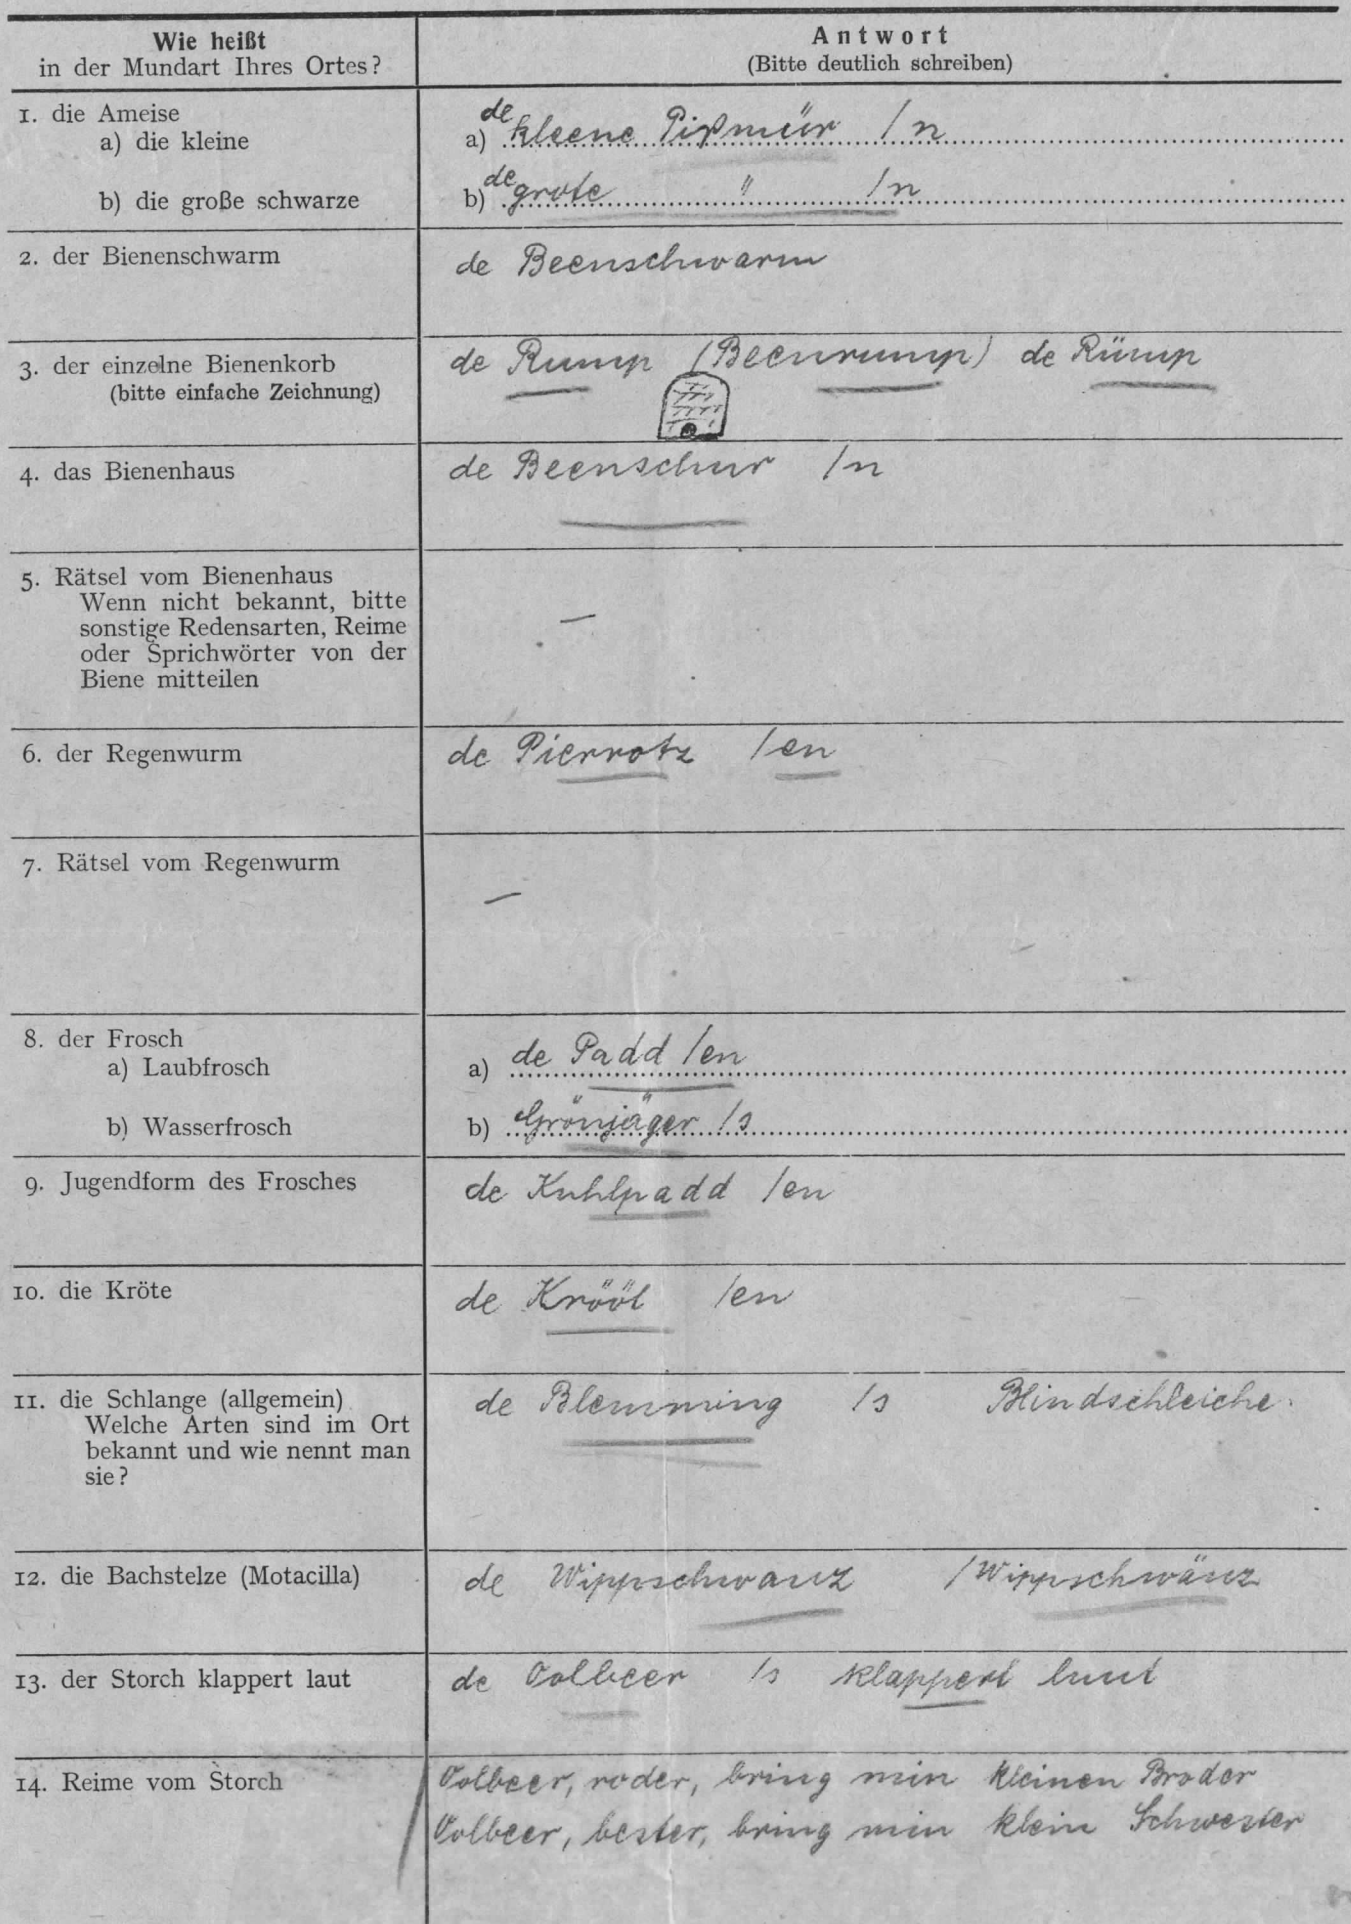 Wie heißt
in der Mundart Ihres Ortes?
Antwort
(Bitte deutlich schreiben)
1. die Ameise
a) die kleine
a) de kleene Pißmür /n
b) die große schwarze
b) de grote " /n
2. der Bienenschwarm
de Beenschwarm
3. der einzelne Bienenkorb
(bitte einfache Zeichnung)
de Rump (Beenrump) de Rümp
4. das Bienenhaus
de Beenschur /n
5. Rätsel vom Bienenhaus
Wenn nicht bekannt, bitte
sonstige Redensarten, Reime
oder Sprichwörter von der
Biene mitteilen
—
6. der Regenwurm
de Pierrotz /en
7. Rätsel vom Regenwurm
—
8. der Frosch
a) Laubfrosch
a) de Padd /en
b) Wasserfrosch
b) Grönjäger /s
9. Jugendform des Frosches
de Kuhlpadd /en
10. die Kröte
de Krööt /en
11. die Schlange (allgemein)
Welche Arten sind im Ort
bekannt und wie nennt man
sie?
de Blemming /s Blindschleiche.
12. die Bachstelze (Motacilla)
de Wippschwanz /Wippschwänz
13. der Storch klappert laut
de Oolbeer /s klappert luut
14. Reime vom Storch
Oolbeer, roder, bring min kleinen Broder
Oolbeer, bester, bring min klein Schwester